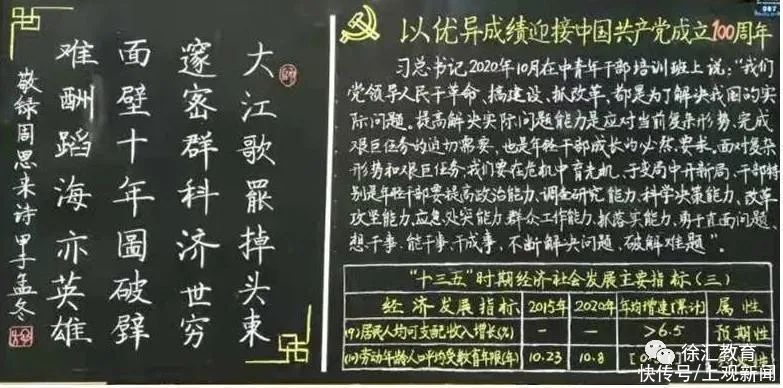 大江歌罷掉头東
邃密群科济世穷
面壁十年圖破壁
难酬蹈海亦英雄
敬録周恩来诗 甲子孟冬
以优异成绩迎接中国共产党成立100周年
习总书记2020年10月在中青年干部培训班上说:“我们
党领导人民干革命、搞建设、抓改革,都是为了解决我国的实
际问题。提高解决实际问题能力是应对当前复杂形势、完成
艰巨任务的迫切需要,也是年轻干部成长的必然要求。面对复杂
形势和艰巨任务,我们要在危机中育先机、于变局中开新局,干部特
别是年轻干部要提高政治能力、调查研究能力、科学决策能力、改革
攻坚能力、应急处突能力、群众工作能力、抓落实能力,勇于直面问题,
想干事、能干事、干成事,不断解决问题、破解难题”。
“十三五”时期经济社会发展主要指标(三)
经济发展指标 2015年 2020年 年均增速(累计) 属性
(9)居民人均可支配收入增长(%) - - >6.5 预期性
(10)劳动年龄人口平均受教育年限(年) 10.23 10.8
徐汇教育
快传号/上观新闻